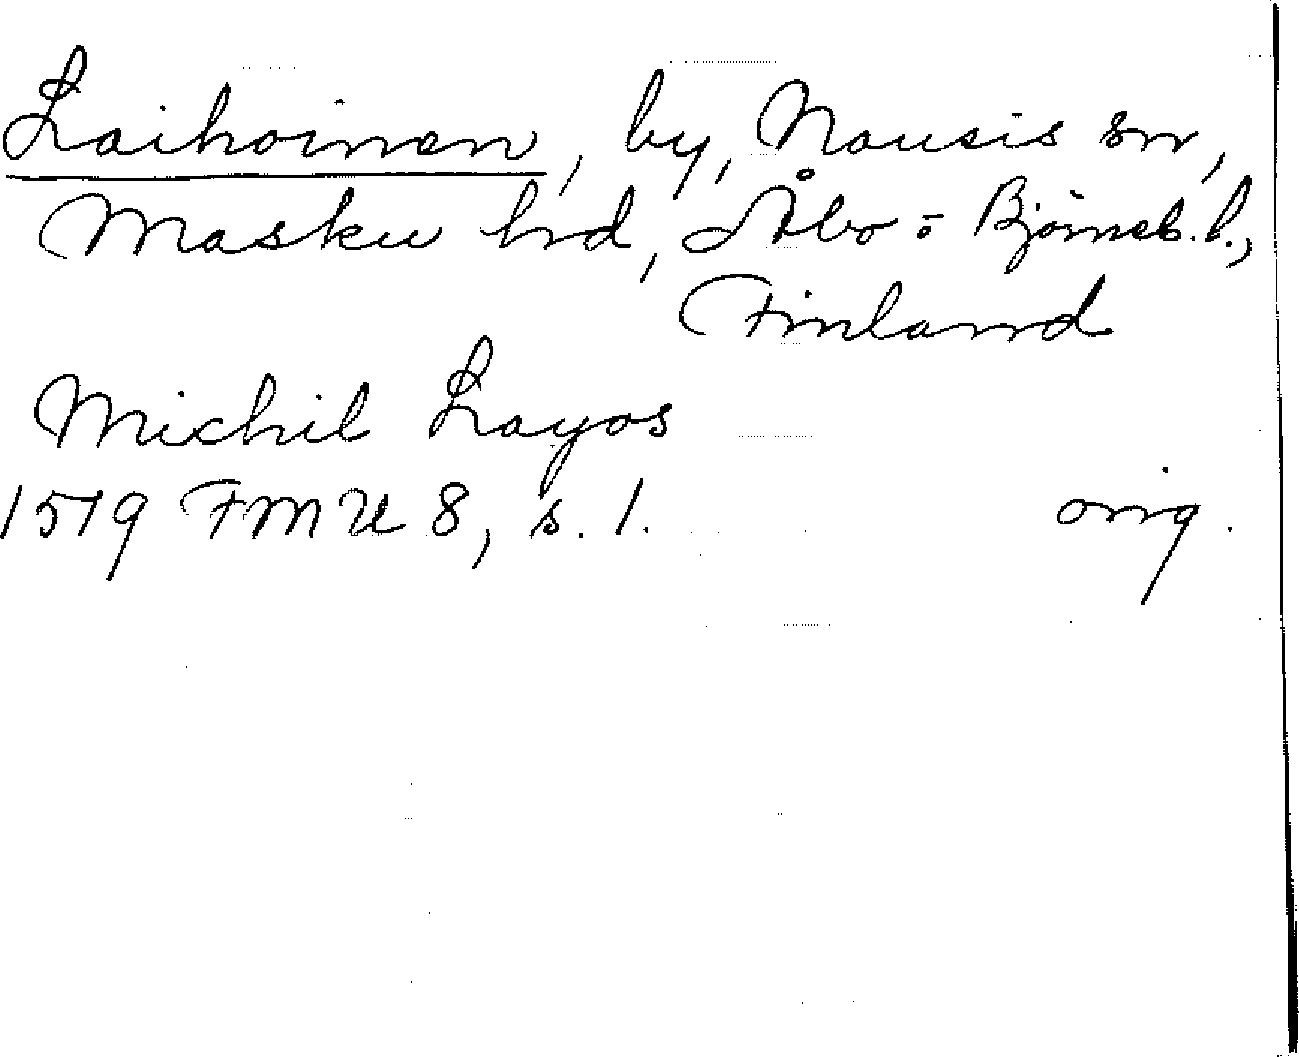 Laihoinen, by, Nousis sn,
Masku hrd, Åbo- Björneb. l.,
Finland
Michil Layos
1579 FMU 8, s. 1. orig.